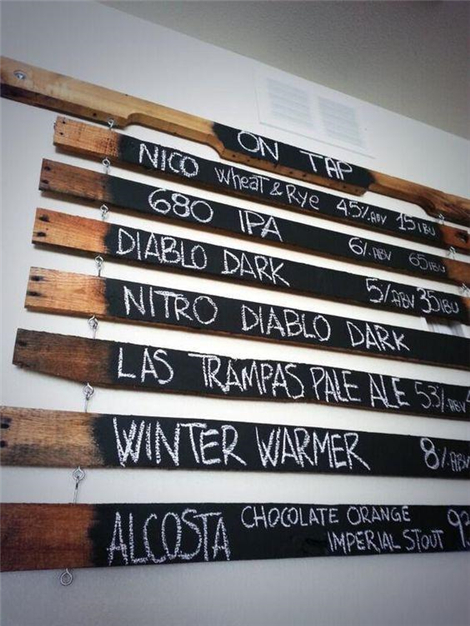 ON TAP
NICO Wheat & Rye 4.5% ABV 15 IBU
680 IPA 6% ABV 65 IBU
DIABLO DARK 5% ABV 35 IBU
NITRO DIABLO DARK
LAS TRAMPAS PALE ALE 5.3% ABV
WINTER WARMER 8% ABV
ALCOSTA CHOCOLATE ORANGE
IMPERIAL STOUT